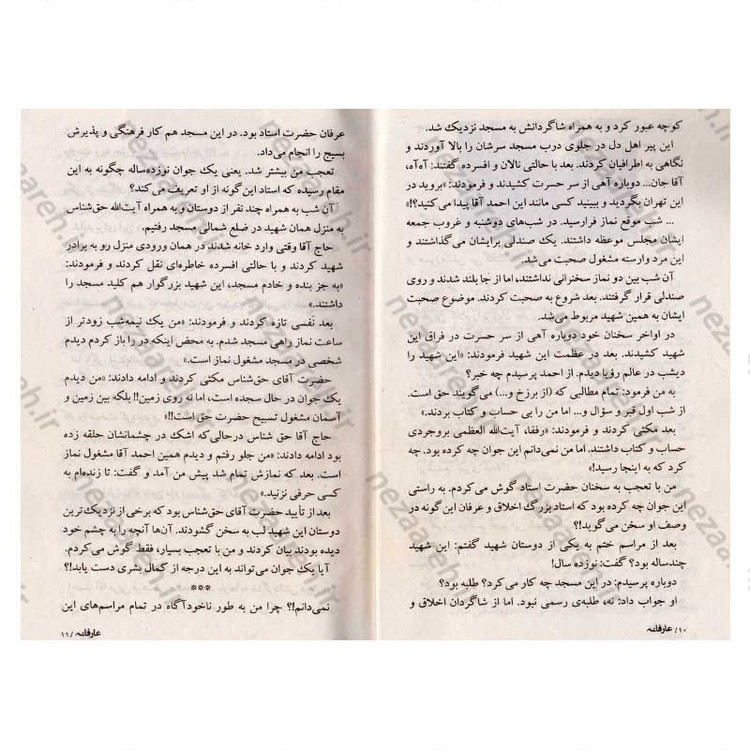 کوچه عبور کرد و به همراه شاگردانش به مسجد نزدیک شد.
این پیر اهل دل در جلوی درب مسجد سرشان را بالا آوردند و
نگاهی به اطرافیان کردند. بعد با حالتی نالان و افسرده گفتند: آه‌آه،
آقا جان... دوباره آهی از سر حسرت کشیدند و فرمودند: «بروید در
این تهران بگردید و ببینید کسی مانند این احمد آقا پیدا می‌کنید؟!»
... شب موقع نماز فرارسید. در شب‌های دوشنبه و غروب جمعه
ایشان مجلس موعظه داشتند. یک صندلی برایشان می‌گذاشتند و
این مرد وارسته مشغول صحبت می‌شد.
آن شب بین دو نماز سخنرانی نداشتند، اما از جا بلند شدند و روی
صندلی قرار گرفتند. بعد شروع به صحبت کردند. موضوع صحبت
ایشان به همین شهید مربوط می‌شد.
در اواخر سخنان خود دوباره آهی از سر حسرت در فراق این
شهید کشیدند. بعد در عظمت این شهید فرمودند: «این شهید را
دیشب در عالم رؤیا دیدم. از احمد پرسیدم چه خبر؟
به من فرمود: تمام مطالبی که (از برزخ و...) می‌گویند حق است.
از شب اول قبر و سؤال و... اما من را بی حساب و کتاب بردند.»
بعد مکثی کردند و فرمودند: «رفقا، آیت‌الله العظمی بروجردی
حساب و کتاب داشتند. اما من نمی‌دانم این جوان چه کرده بود. چه
کرد که به اینجا رسید!»
من با تعجب به سخنان حضرت استاد گوش می‌کردم. به راستی
این جوان چه کرده بود که استاد بزرگ اخلاق و عرفان این گونه در
وصف او سخن می‌گوید!؟
بعد از مراسم ختم به یکی از دوستان شهید گفتم: این شهید
چندساله بود؟ گفت: نوزده سال!
دوباره پرسیدم: در این مسجد چه کار می‌کرد؟ طلبه بود؟
او جواب داد: نه، طلبه‌ی رسمی نبود. اما از شاگردان اخلاق و
۱۰/ عارفانه
عرفان حضرت استاد بود. در این مسجد هم کار فرهنگی و پذیرش
بسیج را انجام می‌داد.
تعجب من بیشتر شد. یعنی یک جوان نوزده‌ساله چگونه به این
مقام رسیده که استاد این‌گونه از او تعریف می‌کند؟
آن شب به همراه چند نفر از دوستان و به همراه آیت‌الله حق‌شناس
به منزل همان شهید در ضلع شمالی مسجد رفتیم.
حاج آقا وقتی وارد خانه شدند در همان ورودی منزل رو به برادر
شهید کردند و با حالتی افسرده خاطره‌ای نقل کردند و فرمودند:
«به جز بنده و خادم مسجد، این شهید بزرگوار هم کلید مسجد را
داشتند.»
بعد نفسی تازه کردند و فرمودند: «من یک نیمه‌شب زودتر از
ساعت نماز راهی مسجد شدم. به محض اینکه در را باز کردم دیدم
شخصی در مسجد مشغول نماز است.»
حضرت آقای حق‌شناس مکثی کردند و ادامه دادند: «من دیدم
یک جوان در حال سجده است، اما نه روی زمین!! بلکه بین زمین و
آسمان مشغول تسبیح حضرت حق است!!»
حاج آقا حق شناس درحالی‌که اشک در چشمانشان حلقه زده
بود ادامه دادند: «من جلو رفتم و دیدم همین احمد آقا مشغول نماز
است. بعد که نمازش تمام شد پیش من آمد و گفت: تا زنده‌ام به
کسی حرفی نزنید.»
بعد از تأیید حضرت آقای حق‌شناس بود که برخی از نزدیک‌ترین
دوستان این شهید لب به سخن گشودند. آن‌ها آنچه را به چشم خود
دیده بودند بیان کردند و من با تعجب بسیار، فقط گوش می‌کردم.
آیا یک جوان می‌تواند به این درجه از کمال بشری دست یابد!؟
***
نمی‌دانم!؟ چرا من به طور ناخودآگاه در تمام مراسم‌های این
عارفانه /۱۱
nezaareh.ir